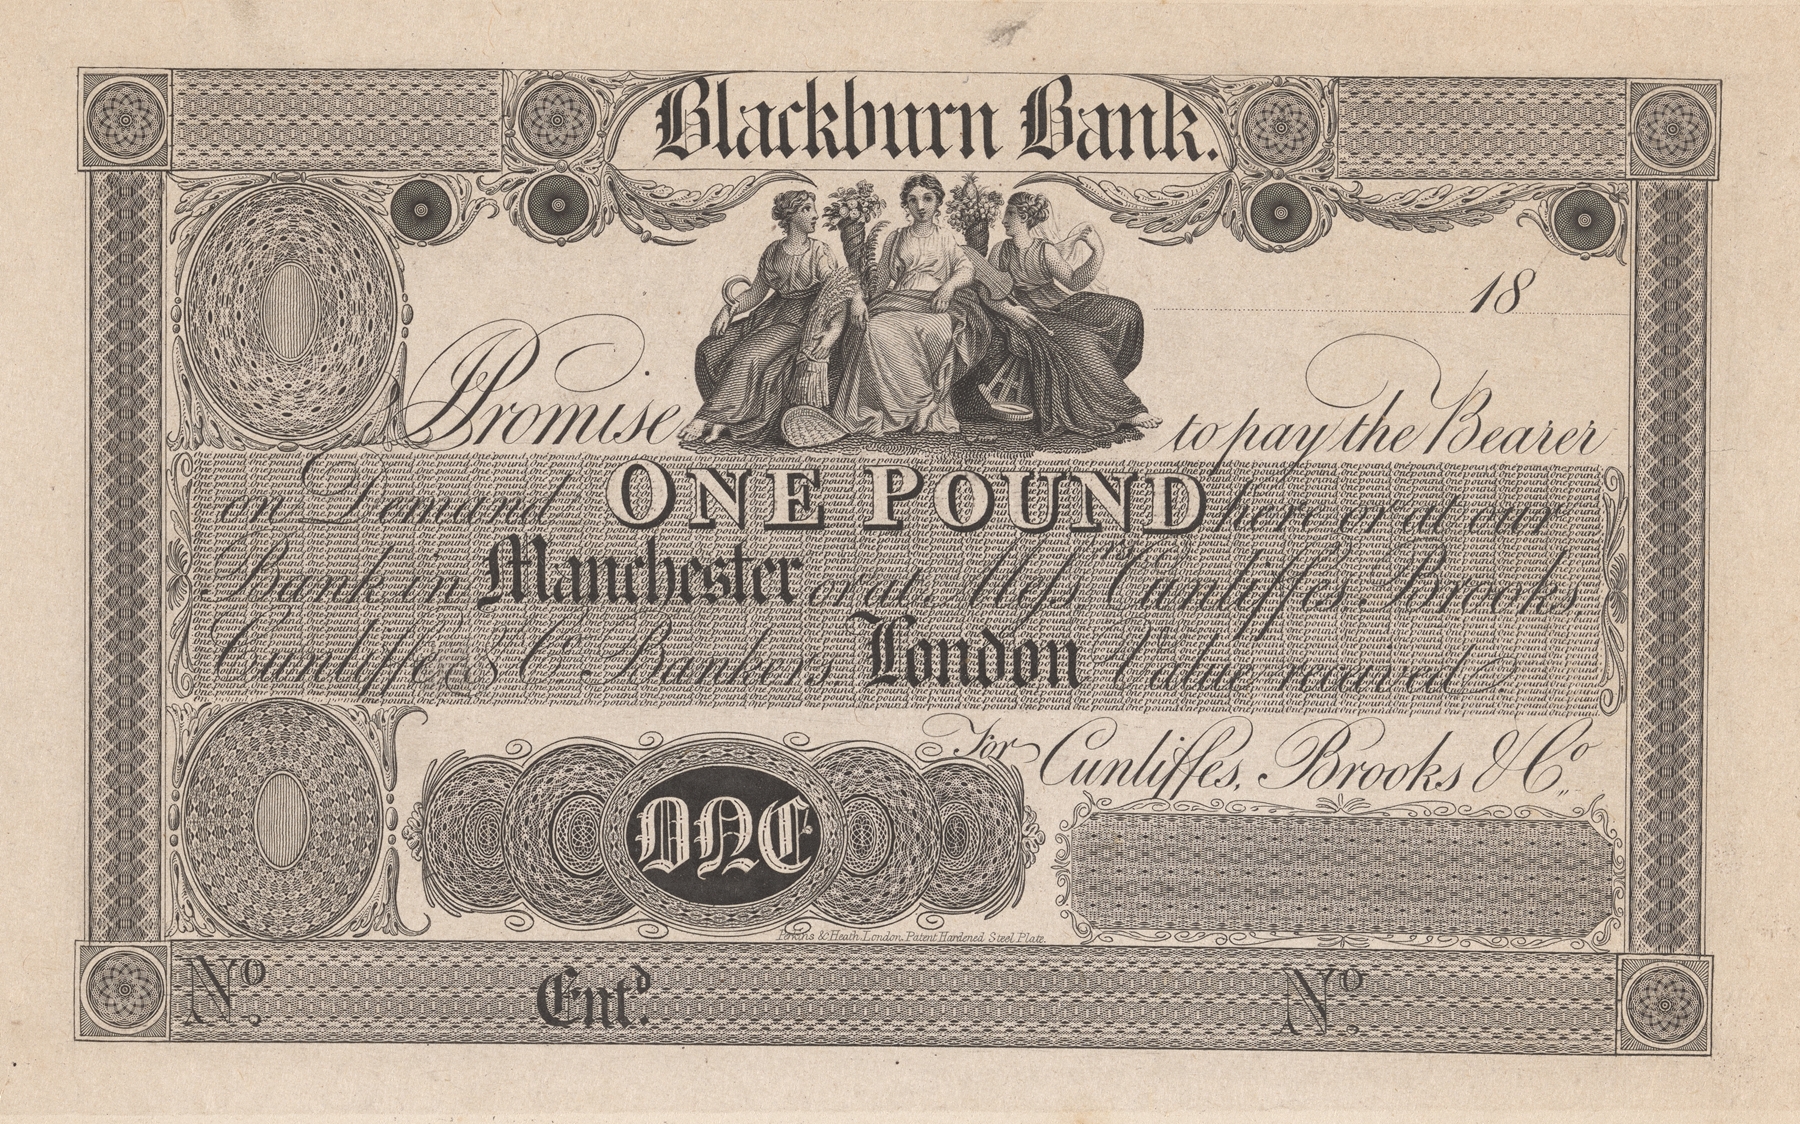 Blackburn Bank.
18
I Promise to pay the Bearer
on Demand ONE POUND here or at our
Bank in Manchester or at Messrs Cunliffes, Brooks,
Cunliffe & Co Bankers, London Value received.
For Cunliffes, Brooks & Co.
ONE
Perkins & Heath London, Patent Hardened Steel Plate.
No. Entd. No.